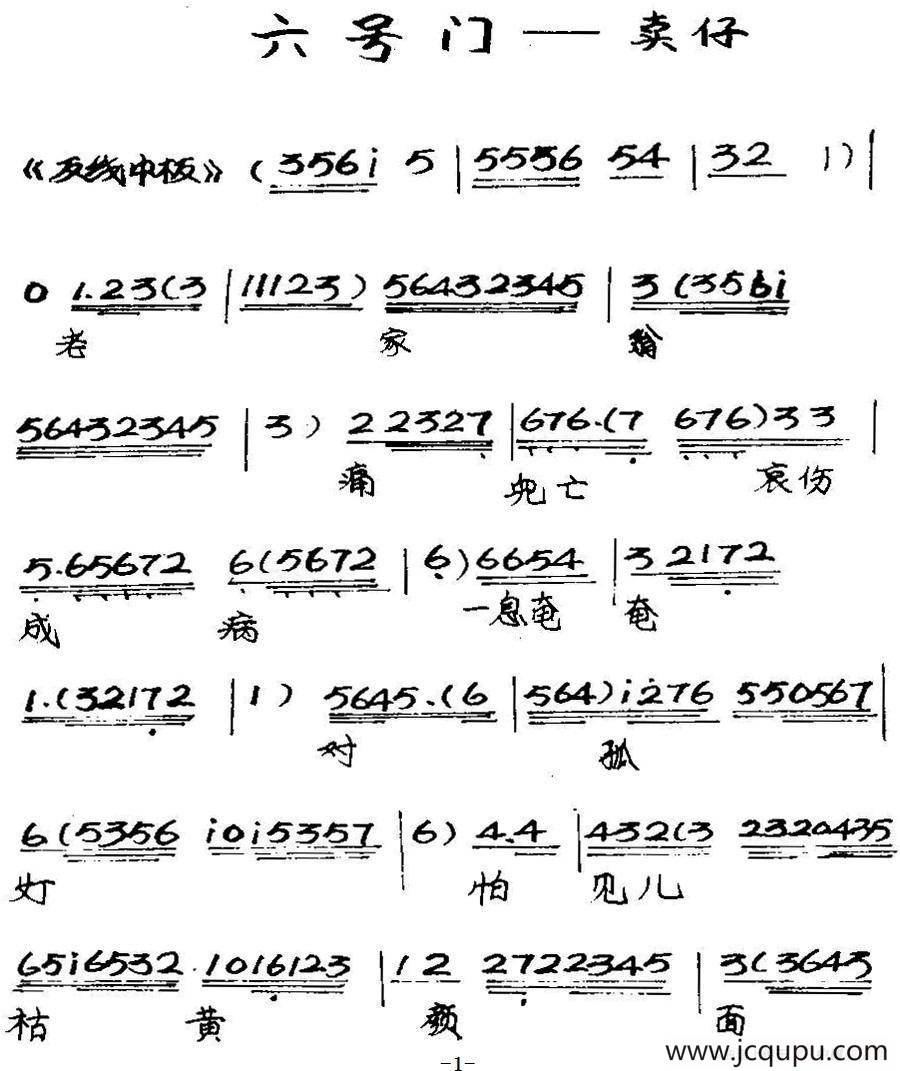 六号门——卖仔
《反线中板》(356i 5 | 5536 54 | 32 1) |
0 1.23(3 | 11123) 56432345 | 3 (356i
老 家 翁
56432345 | 3) 2 2327 | 676.(7 676)33 |
痛 儿亡 哀伤
5.65672 6(5672 | 6)6654 | 3 2172
成 病 一息奄 奄
1.(32172 | 1) 5645.(6 | 564)i276 550567 |
对 孤
6(5356 i0i5357 | 6) 4.4 | 432(3 2320435
灯 怕 见儿
65i6532 1016123 | 12 2722345 | 3(3643
枯 黄 颜 面
-1-
www.jcqupu.com